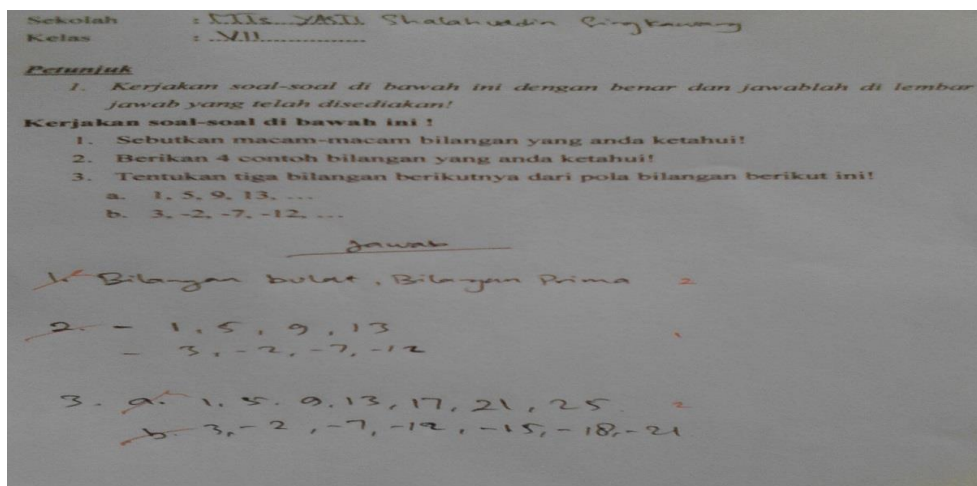 Sekolah : MTs. YASTI Shalahuddin Singkawang
Kelas : VII
Petunjuk
1. Kerjakan soal-soal di bawah ini dengan benar dan jawablah di lembar
jawab yang telah disediakan!
Kerjakan soal-soal di bawah ini !
1. Sebutkan macam-macam bilangan yang anda ketahui!
2. Berikan 4 contoh bilangan yang anda ketahui!
3. Tentukan tiga bilangan berikutnya dari pola bilangan berikut ini!
a. 1, 5, 9, 13, ...
b. 3, -2, -7, -12, ...
Jawab
1. Bilangan bulat, Bilangan Prima 2
2. - 1, 5, 9, 13 1
- 3, -2, -7, -12
3. a. 1, 5, 9, 13, 17, 21, 25. 2
b. 3, -2, -7, -12, -15, -18, -21